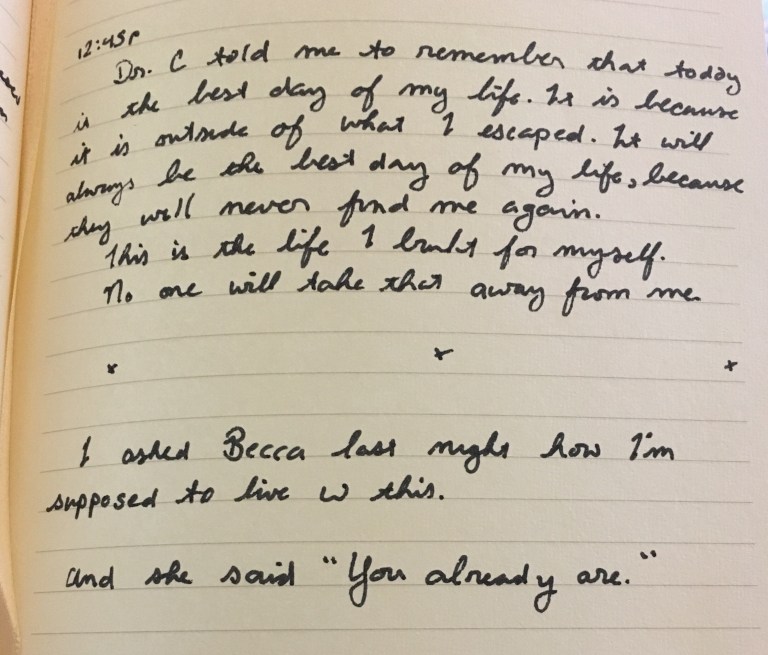 12:45P
Dr. C told me to remember that today
is the best day of my life. It is because
it is outside of what I escaped. It will
always be the best day of my life, because
they will never find me again.
This is the life I built for myself.
No one will take that away from me.
x x x
I asked Becca last night how I'm
supposed to live w this.
and she said "You already are."